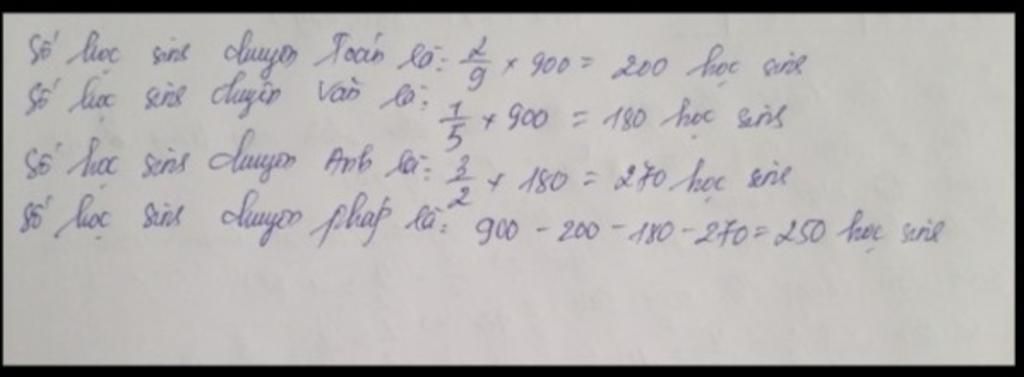 Số học sinh chuyên Toán là: 2/9 × 900 = 200 học sinh
Số học sinh chuyên Văn là: 1/5 × 900 = 180 học sinh
Số học sinh chuyên Anh là: 3/2 × 180 = 270 học sinh
Số học sinh chuyên pháp là: 900 - 200 - 180 - 270 = 250 học sinh